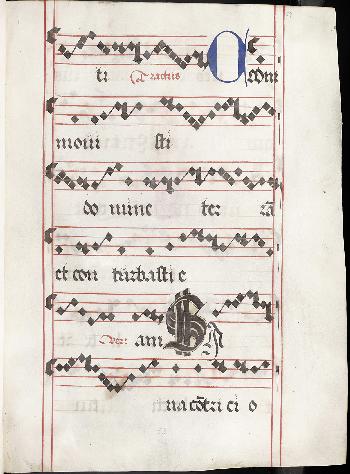 ti Tractus Com
moui sti
do mine ter rā
et con turbasti e
am Sa
na cōtri ci o